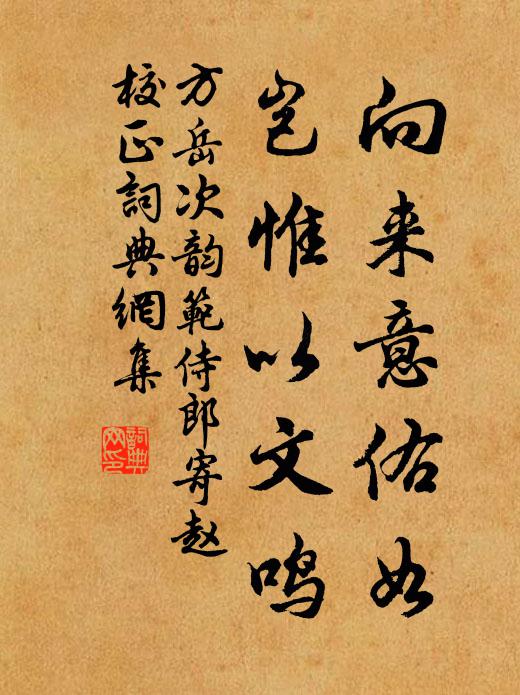 向来意佑如
岂惟以文鸣
方岳次韵範侍郎寄赵
校正詞典網集
詞典
网印